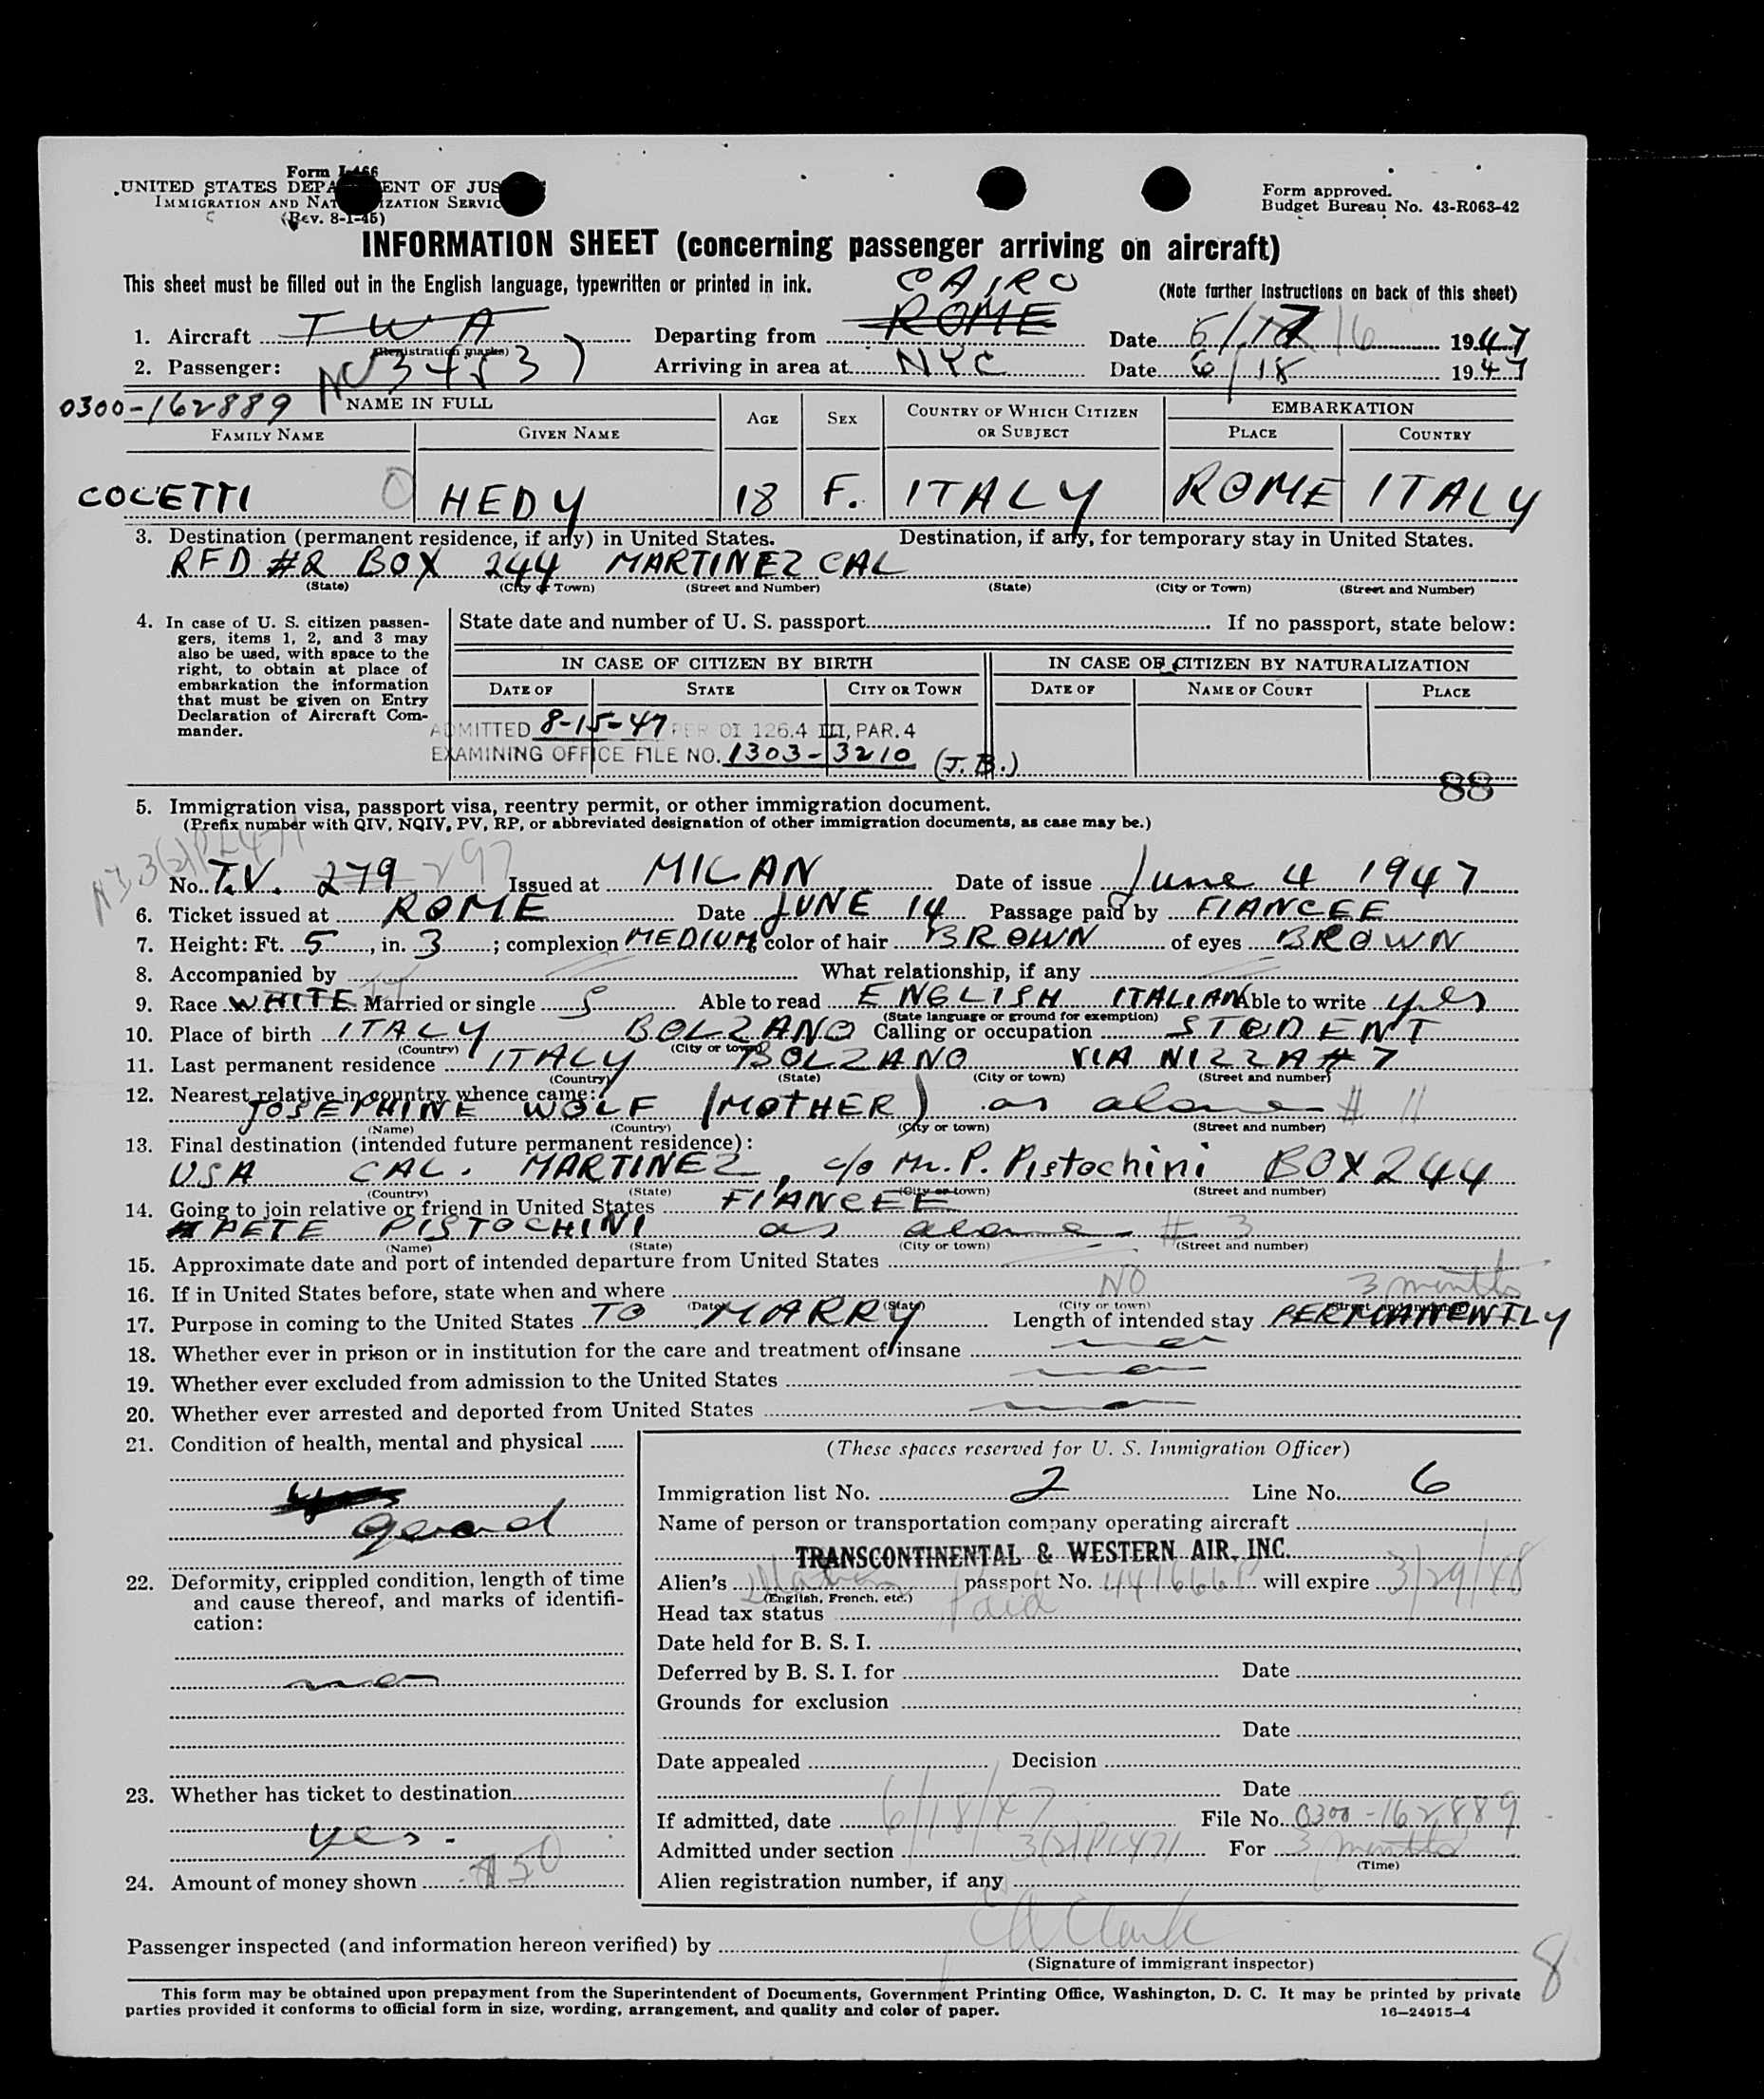 Form I-466
UNITED STATES DEPA ENT OF JUS
IMMIGRATION AND NAT IZATION SERVIC
(Rev. 8-1-45)
Form approved.
Budget Bureau No. 43-R063-42
INFORMATION SHEET (concerning passenger arriving on aircraft)
This sheet must be filled out in the English language, typewritten or printed in ink.
(Note further instructions on back of this sheet)
CAIRO
1. Aircraft TWA Departing from ROME Date 6/17 16 1947
(Registration marks)
2. Passenger: NC 3453) Arriving in area at NYC Date 6/18 1947
0300-162889 NAME IN FULL AGE SEX COUNTRY OF WHICH CITIZEN OR SUBJECT EMBARKATION
FAMILY NAME GIVEN NAME PLACE COUNTRY
COLETTI HEDY 18 F. ITALY ROME ITALY
3. Destination (permanent residence, if any) in United States. Destination, if any, for temporary stay in United States.
RFD #2 BOX 244 MARTINEZ CAL
(State) (City or Town) (Street and Number) (State) (City or Town) (Street and Number)
4. In case of U. S. citizen passengers, items 1, 2, and 3 may also be used, with space to the right, to obtain at place of embarkation the information that must be given on Entry Declaration of Aircraft Commander.
State date and number of U. S. passport If no passport, state below:
IN CASE OF CITIZEN BY BIRTH IN CASE OF CITIZEN BY NATURALIZATION
DATE OF STATE CITY OR TOWN DATE OF NAME OF COURT PLACE
ADMITTED 8-15-47 PER OI 126.4 III, PAR. 4
EXAMINING OFFICE FILE NO. 1303-3210 (J.B.)
88
5. Immigration visa, passport visa, reentry permit, or other immigration document.
(Prefix number with QIV, NQIV, PV, RP, or abbreviated designation of other immigration documents, as case may be.)
3(2) PL 471
No. T.V. 279 297 Issued at MILAN Date of issue June 4 1947
6. Ticket issued at ROME Date JUNE 14 Passage paid by FIANCEE
7. Height: Ft. 5, in. 3; complexion MEDIUM color of hair BROWN of eyes BROWN
8. Accompanied by What relationship, if any
9. Race WHITE Married or single S Able to read ENGLISH ITALIAN Able to write yes
(State language or ground for exemption)
10. Place of birth ITALY BOLZANO Calling or occupation STUDENT
(Country) (City or town)
11. Last permanent residence ITALY BOLZANO VIA NIZZA # 7
(Country) (State) (City or town) (Street and number)
12. Nearest relative in country whence came:
JOSEPHINE WOLF (MOTHER) as alone # 11
(Name) (Country) (City or town) (Street and number)
13. Final destination (intended future permanent residence):
USA CAL. MARTINEZ, c/o Mr. P. Pistochini BOX 244
(Country) (State) (City or town) (Street and number)
14. Going to join relative or friend in United States FIANCEE
PETE PISTOCHINI as alone # 3
(Name) (State) (City or town) (Street and number)
15. Approximate date and port of intended departure from United States
16. If in United States before, state when and where NO 3 months
(Date) (State) (City or town) (Street and number)
17. Purpose in coming to the United States TO MARRY Length of intended stay PERMANENTLY
18. Whether ever in prison or in institution for the care and treatment of insane no
19. Whether ever excluded from admission to the United States no
20. Whether ever arrested and deported from United States no
21. Condition of health, mental and physical
good
22. Deformity, crippled condition, length of time and cause thereof, and marks of identification:
no
23. Whether has ticket to destination
yes.
24. Amount of money shown $50
(These spaces reserved for U. S. Immigration Officer)
Immigration list No. 2 Line No. 6
Name of person or transportation company operating aircraft
TRANSCONTINENTAL & WESTERN AIR, INC.
Alien's passport No. 441666P will expire 3/29/48
(English, French, etc.)
Head tax status Paid
Date held for B. S. I.
Deferred by B. S. I. for Date
Grounds for exclusion
Date
Date appealed Decision
Date
If admitted, date 6/18/47 File No. 0300-162889
Admitted under section 3(2) PL 471 For 3 months
(Time)
Alien registration number, if any
Passenger inspected (and information hereon verified) by CA Clark
(Signature of immigrant inspector)
8
This form may be obtained upon prepayment from the Superintendent of Documents, Government Printing Office, Washington, D. C. It may be printed by private
parties provided it conforms to official form in size, wording, arrangement, and quality and color of paper.
16—24915-4